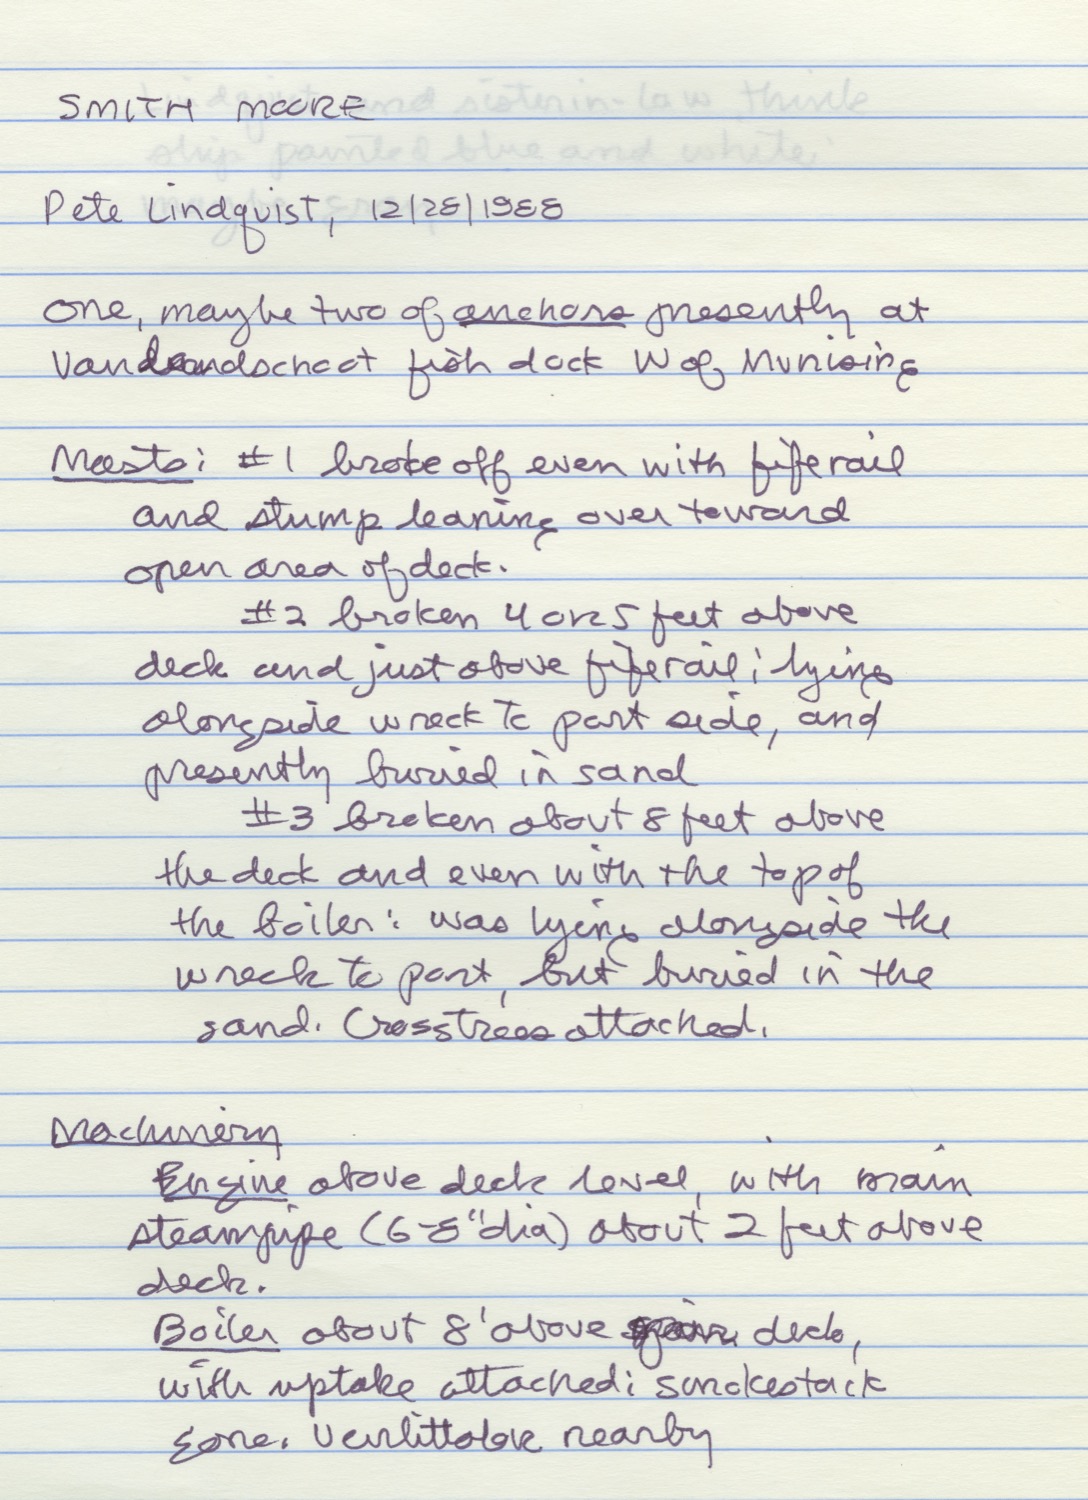 SMITH MOORE
Pete Lindquist, 12/28/1988
One, maybe two of anchors presently at
fish dock W of Munising
Masts: #1 broke off even with fiferail
and stump leaning over toward
open area of deck.
#2 broken 4 or 5 feet above
deck and just above fiferail; lying
alongside wreck to port side, and
presently buried in sand
#3 broken about 8 feet above
the deck and even with the top of
the boiler: was lying alongside the
wreck to port, but buried in the
sand. Crosstrees attached.
Machinery
Engine above deck level, with main
steampipe (6-8" dia) about 2 feet above
deck.
Boiler about 8' above deck,
with uptake attached; smokestack
gone. nearby
Lindquist and sister in-law think
ship painted blue and white;
maybe